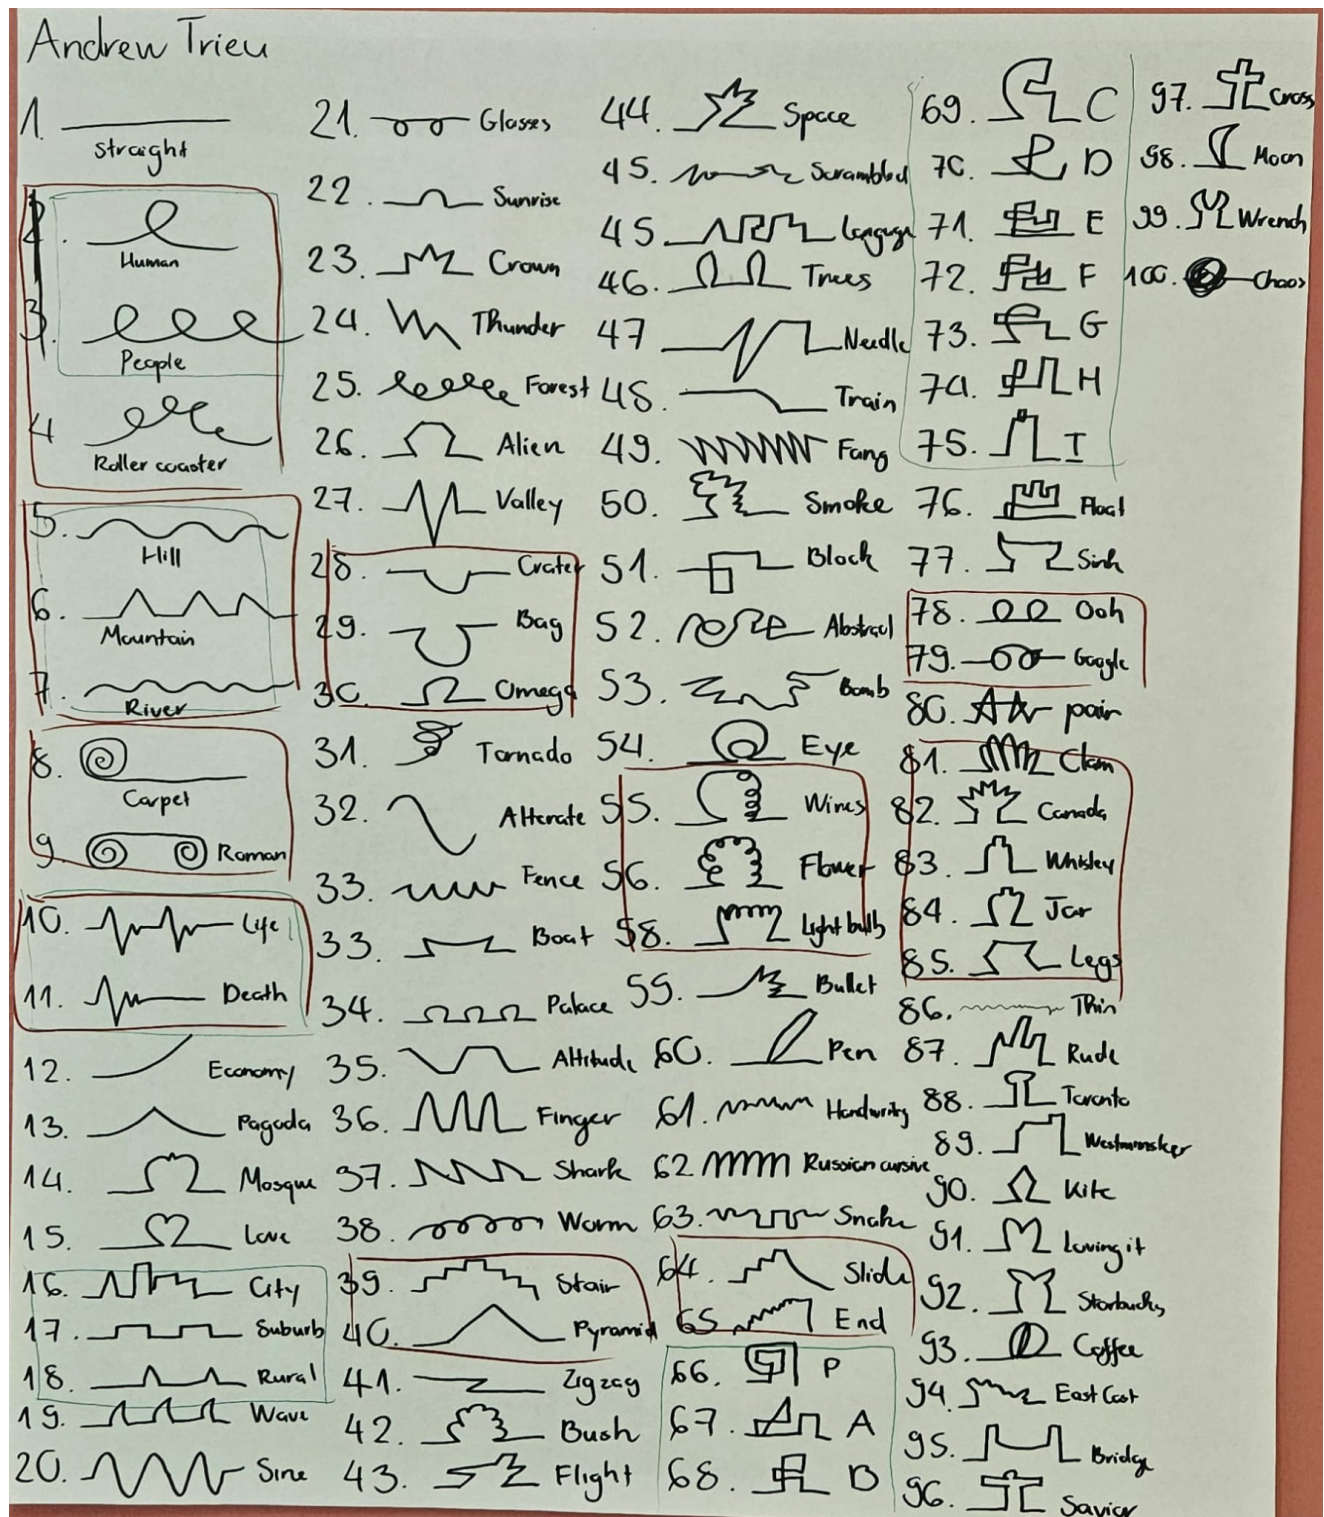 Andrew Trieu
1. Straight
2. Human
3. People
4 Roller coaster
5. Hill
6. Mountain
7. River
8. Carpet
9. Roman
10. Life
11. Death
12. Economy
13. Pagoda
14. Mosque
15. Love
16. City
17. Suburb
18. Rural
19. Wave
20. Sine
21. Glasses
22. Sunrise
23. Crown
24. Thunder
25. Forest
26. Alien
27. Valley
28. Crater
29. Bag
30. Omega
31. Tornado
32. Alterate
33. Fence
33. Boat
34. Palace
35. Altitude
36. Finger
37. Shark
38. Worm
39. Stair
40. Pyramid
41. Zigzag
42. Bush
43. Flight
44. Space
45. Scrambled
45.
46. Trees
47 Needle
48. Train
49. Fang
50. Smoke
51. Block
52. Abstract
53. Bomb
54. Eye
55. Wires
56. Flower
58. Light bulb
59. Bullet
60. Pen
61. Handwriting
62 Russian cursive
63. Snake
64. Slide
65 End
66. P
67. A
68. B
69. C
70. D
71. E
72. F
73. G
74. H
75. I
76. Float
77. Sink
78. Ooh
79. Google
80. pair
81. Clam
82. Canada
83. Whiskey
84. Jar
85. Legs
86. Thin
87. Rude
88. Toronto
89.
90. Kite
91. Loving it
92. Starbucks
93. Coffee
94. East Cost
95. Bridge
96. Savior
97. Cross
98. Moon
99. Wrench
100. Chaos